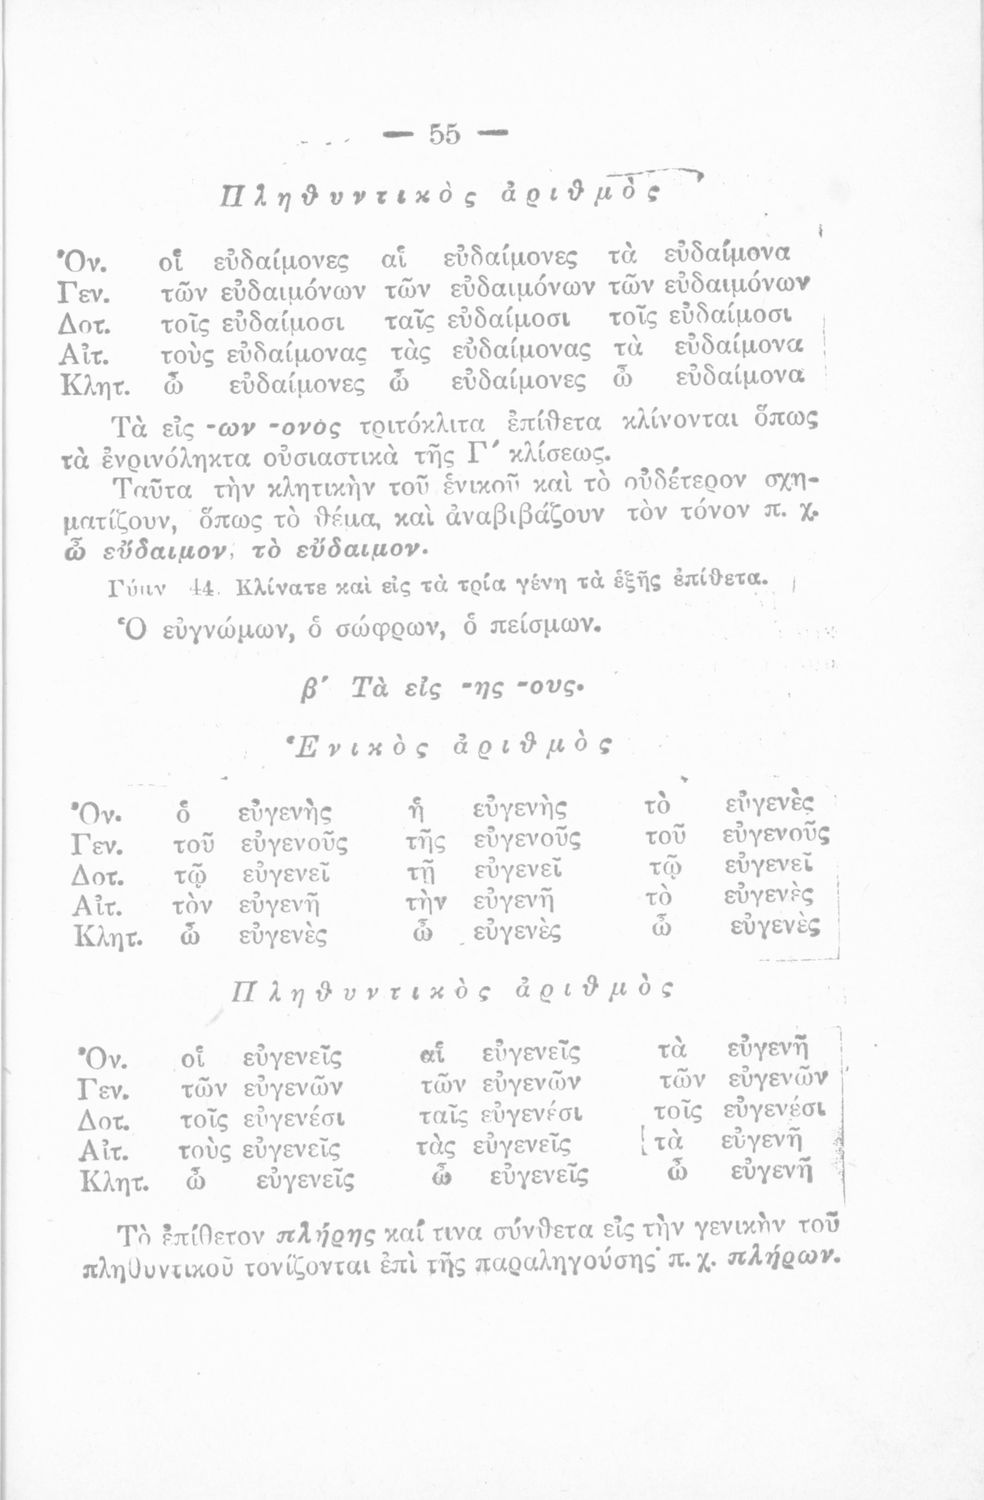 — 55 —
Πληθυντικὸς ἀριθμὸς
Ὀν. οἱ εὐδαίμονες αἱ εὐδαίμονες τὰ εὐδαίμονα
Γεν. τῶν εὐδαιμόνων τῶν εὐδαιμόνων τῶν εὐδαιμόνων
Δοτ. τοῖς εὐδαίμοσι ταῖς εὐδαίμοσι τοῖς εὐδαίμοσι
Αἰτ. τοὺς εὐδαίμονας τὰς εὐδαίμονας τὰ εὐδαίμονα
Κλητ. ὦ εὐδαίμονες ὦ εὐδαίμονες ὦ εὐδαίμονα
Τὰ εἰς -ων -ονος τριτόκλιτα ἐπίθετα κλίνονται ὅπως
τὰ ἐνρινόληκτα οὐσιαστικὰ τῆς Γ΄ κλίσεως.
Ταῦτα τὴν κλητικὴν τοῦ ἑνικοῦ καὶ τὸ οὐδέτερον σχη-
ματίζουν, ὅπως τὸ θέμα, καὶ ἀναβιβάζουν τὸν τόνον π. χ.
ὦ εὔδαιμον, τὸ εὔδαιμον.
Γύμν 44. Κλίνατε καὶ εἰς τὰ τρία γένη τὰ ἑξῆς ἐπίθετα.
Ὁ εὐγνώμων, ὁ σώφρων, ὁ πείσμων.
β΄ Τὰ εἰς -ης -ους.
Ἑνικὸς ἀριθμὸς
Ὀν. ὁ εὐγενὴς ἡ εὐγενὴς τὸ εὐγενὲς
Γεν. τοῦ εὐγενοῦς τῆς εὐγενοῦς τοῦ εὐγενοῦς
Δοτ. τῷ εὐγενεῖ τῇ εὐγενεῖ τῷ εὐγενεῖ
Αἰτ. τὸν εὐγενῆ τὴν εὐγενῆ τὸ εὐγενὲς
Κλητ. ὦ εὐγενὲς ὦ εὐγενὲς ὦ εὐγενὲς
Πληθυντικὸς ἀριθμὸς
Ὀν. οἱ εὐγενεῖς αἱ εὐγενεῖς τὰ εὐγενῆ
Γεν. τῶν εὐγενῶν τῶν εὐγενῶν τῶν εὐγενῶν
Δοτ. τοῖς εὐγενέσι ταῖς εὐγενέσι τοῖς εὐγενέσι
Αἰτ. τοὺς εὐγενεῖς τὰς εὐγενεῖς τὰ εὐγενῆ
Κλητ. ὦ εὐγενεῖς ὦ εὐγενεῖς ὦ εὐγενῆ
Τὸ ἐπίθετον πλήρης καί τινα σύνθετα εἰς τὴν γενικὴν τοῦ
πληθυντικοῦ τονίζονται ἐπὶ τῆς παραληγούσης· π. χ. πλήρων.